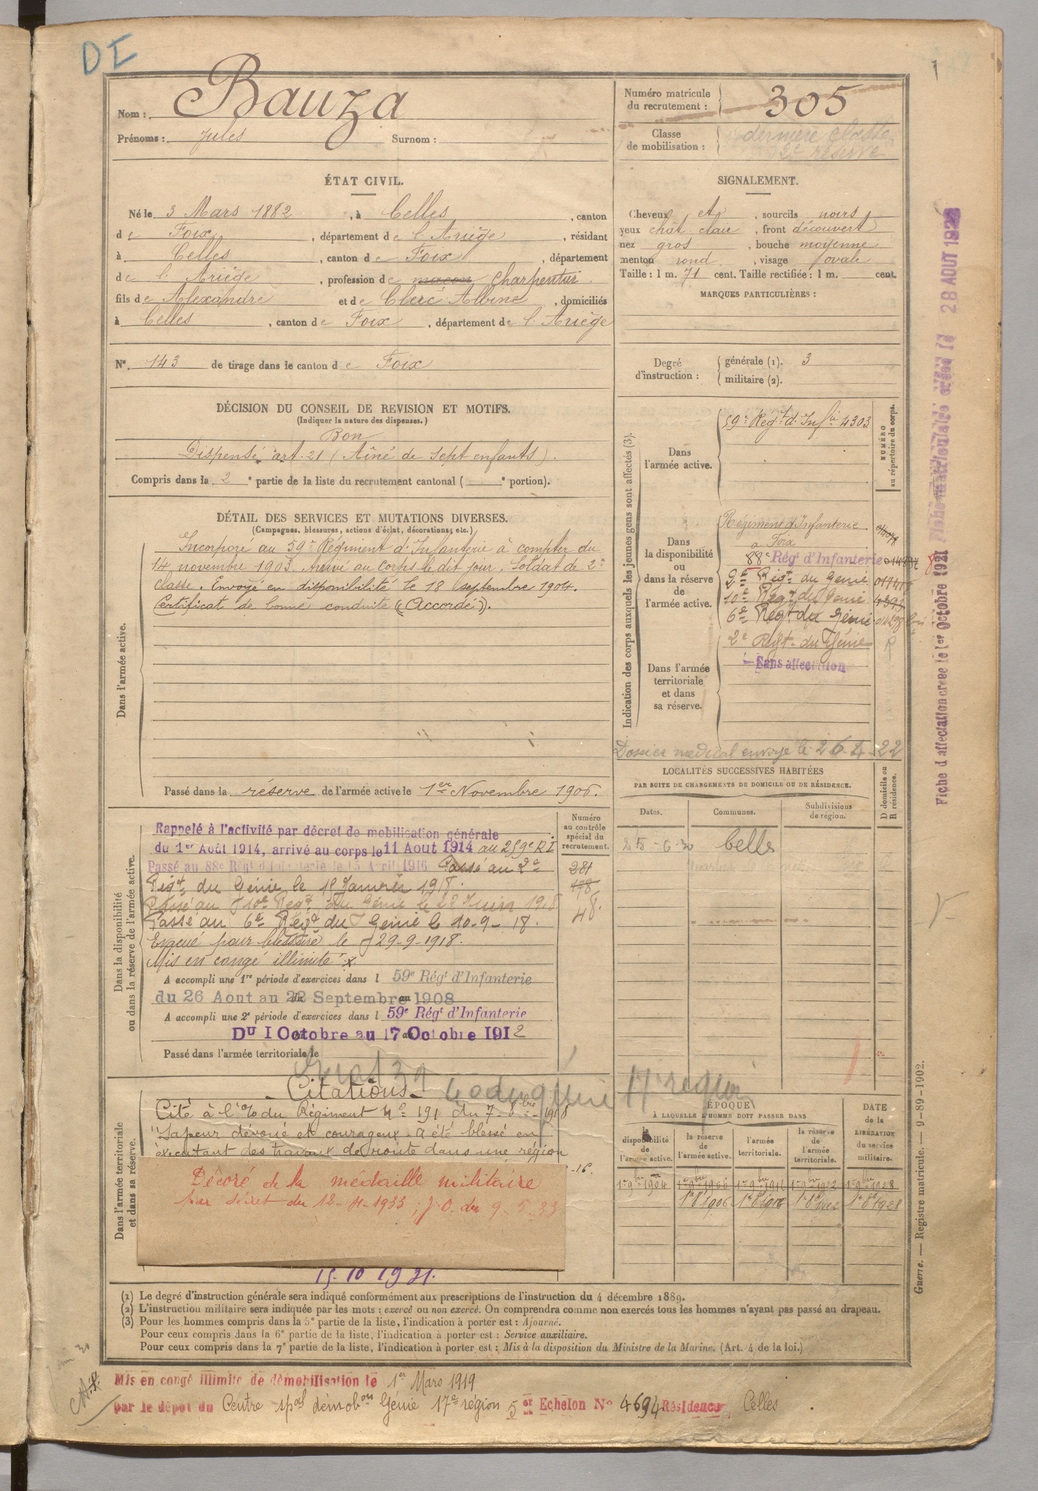 DE
Nom : Bauza
Prénoms : Jules Surnom :
Numéro matricule du recrutement : 305
Classe de mobilisation : dernière classe
2e réserve
ÉTAT CIVIL.
Né le 3 Mars 1882, à Celles, canton
de Foix, département de l'Ariège, résidant
à Celles, canton de Foix, département
de l'Ariège, profession de maçon Charpentier
fils de Alexandre et de Clerc Albine, domiciliés
à Celles, canton de Foix, département de l'Ariège
N° 143 de tirage dans le canton de Foix
SIGNALEMENT.
Cheveux et, sourcils noirs
yeux chat. clair, front découvert
nez gros, bouche moyenne
menton rond, visage ovale
Taille : 1 m. 71 cent. Taille rectifiée : 1 m. cent.
MARQUES PARTICULIÈRES :
Degré d'instruction : générale (1). 3
militaire (2).
DÉCISION DU CONSEIL DE REVISION ET MOTIFS.
(Indiquer la nature des dispenses.)
Bon
Dispensé art. 21 (Aîné de sept enfants).
Compris dans la 2e partie de la liste du recrutement cantonal ( e portion).
DÉTAIL DES SERVICES ET MUTATIONS DIVERSES.
(Campagnes, blessures, actions d'éclat, décorations, etc.)
Dans l'armée active.
Incorporé au 59e Régiment d'Infanterie à compter du
14 novembre 1903. Arrivé au Corps le dit jour. Soldat de 2e
classe. Envoyé en disponibilité le 18 septembre 1904.
Certificat de bonne conduite "Accordé".
Passé dans la réserve de l'armée active le 1er Novembre 1906.
Indication des corps auxquels les jeunes gens sont affectés (3).
NUMÉRO au répertoire du corps.
Dans l'armée active.
59e Régt d'Infie 4303
Dans la disponibilité ou dans la réserve de l'armée active.
Régiment d'Infanterie
à Foix
88e Régt d'Infanterie
2e Régt du Génie
10e Régt du Génie
6e Régt du Génie
Dans l'armée territoriale et dans sa réserve.
2e Régt du Génie
Sans affectation
Dossier médical envoyé le 26-4-22
LOCALITÉS SUCCESSIVES HABITÉES
PAR SUITE DE CHANGEMENTS DE DOMICILE OU DE RÉSIDENCE.
Dates. Communes. Subdivisions de région. D domicile ou R résidence.
25-6-30 Celles
Dans la disponibilité ou dans la réserve de l'armée active.
Numéro au contrôle spécial du recrutement.
281
178
48
Rappelé à l'activité par décret de mobilisation générale
du 1er Août 1914, arrivé au corps le 11 Août 1914 au 259e RI
Passé au 88e Régt d'Infanterie le 15 Avril 1916 Passé au 2e
Régt du Génie le 18 Janvier 1918.
Passé au 10e Régt du Génie le 22 Juin 1918
Passé au 6e Régt du Génie le 10-9-18.
Evacué pour blessure le 29-9-1918.
Mis en congé illimité x
A accompli une 1re période d'exercices dans l 59e Régt d'Infanterie
du 26 Aout au 22 Septembre 1908
A accompli une 2e période d'exercices dans l 59e Régt d'Infanterie
Du 1 Octobre au 17 Octobre 1912
Passé dans l'armée territoriale le
Dans l'armée territoriale et dans sa réserve.
Citations
génie 17e région
Cité à l'O/ du Régiment No 191 du 7- 1918
"Sapeur dévoué et courageux a été blessé en
exécutant des travaux de route dans une région
Décoré de la médaille militaire
Par décret du 12-4-1933; J.O. du 9.5.33
15.10 1921.
ÉPOQUE
À LAQUELLE L'HOMME DOIT PASSER DANS
la disponibilité de l'armée active. la réserve de l'armée active. l'armée territoriale. la réserve de l'armée territoriale.
DATE de la LIBÉRATION du service militaire.
(1) Le degré d'instruction générale sera indiqué conformément aux prescriptions de l'instruction du 4 décembre 1889.
(2) L'instruction militaire sera indiquée par les mots : exercé ou non exercé. On comprendra comme non exercés tous les hommes n'ayant pas passé au drapeau.
(3) Pour les hommes compris dans la 5e partie de la liste, l'indication à porter est : Ajourné.
Pour ceux compris dans la 6e partie de la liste, l'indication à porter est : Service auxiliaire.
Pour ceux compris dans la 7e partie de la liste, l'indication à porter est : Mis à la disposition du Ministre de la Marine. (Art. 4 de la loi.)
Mis en congé illimité de démobilisation le 1er Mars 1919
par le dépôt du Centre spal démobon Génie 17e région 5e Echelon No 4694 Résidence Celles
Fiche d'affectation créée le 1er Octobre 1921
28 AOUT
Guerre. — Registre matricule. — 9-89-1902.